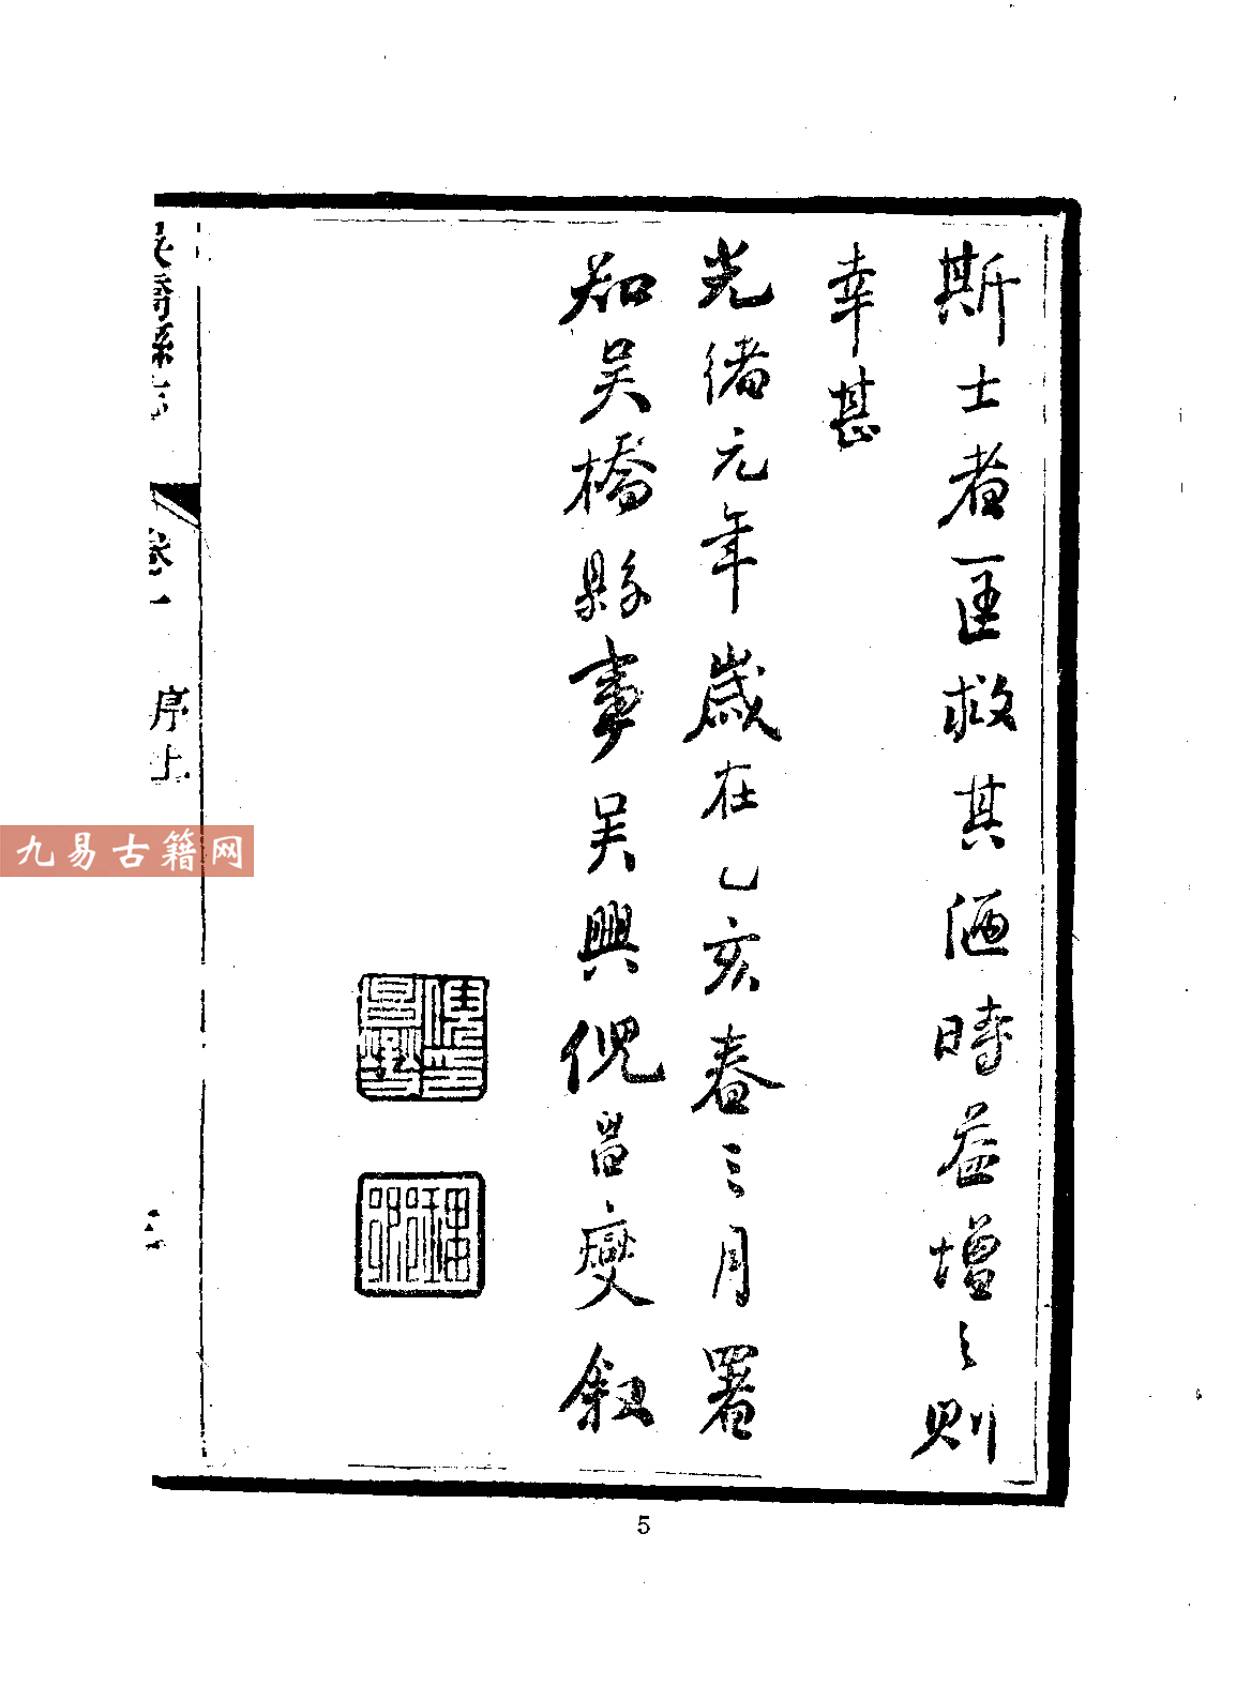 斯士者匡救其陋時益增之則
幸甚
光緒元年歲在乙亥春三月署
知吳橋縣事吳興倪昌燮叙
吳橋縣志 卷一 序上
九易古籍网
5